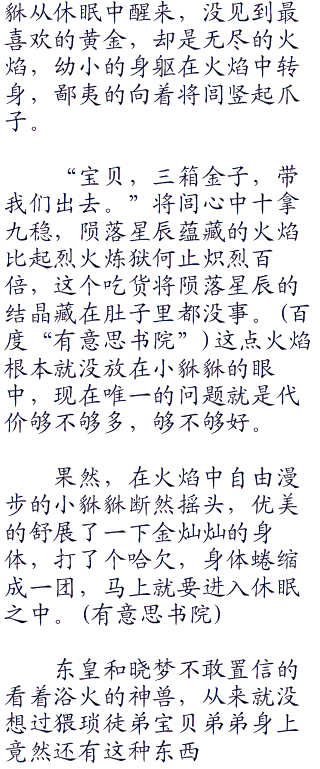 貅从休眠中醒来，没见到最
喜欢的黄金，却是无尽的火
焰，幼小的身躯在火焰中转
身，鄙夷的向着将闾竖起爪
子。
“宝贝，三箱金子，带
我们出去。”将闾心中十拿
九稳，陨落星辰蕴藏的火焰
比起烈火炼狱何止炽烈百
倍，这个吃货将陨落星辰的
结晶藏在肚子里都没事。(百
度“有意思书院”)这点火焰
根本就没放在小貅貅的眼
中，现在唯一的问题就是代
价够不够多，够不够好。
果然，在火焰中自由漫
步的小貅貅断然摇头，优美
的舒展了一下金灿灿的身
体，打了个哈欠，身体蜷缩
成一团，马上就要进入休眠
之中。(有意思书院)
东皇和晓梦不敢置信的
看着浴火的神兽，从来就没
想过猥琐徒弟宝贝弟弟身上
竟然还有这种东西